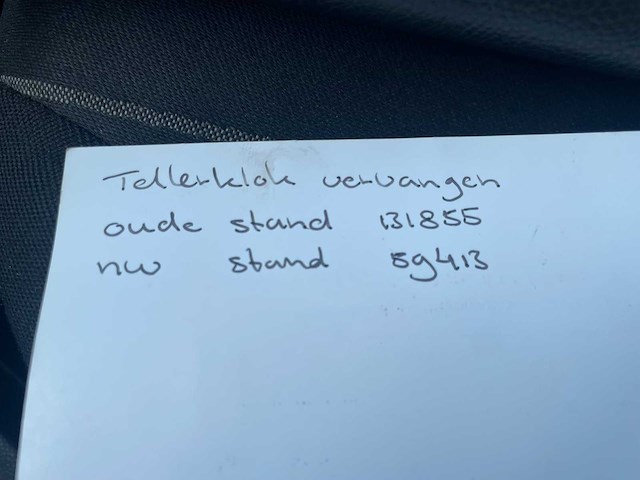 Tellerklok vervangen
oude stand 131855
nw stand 59413